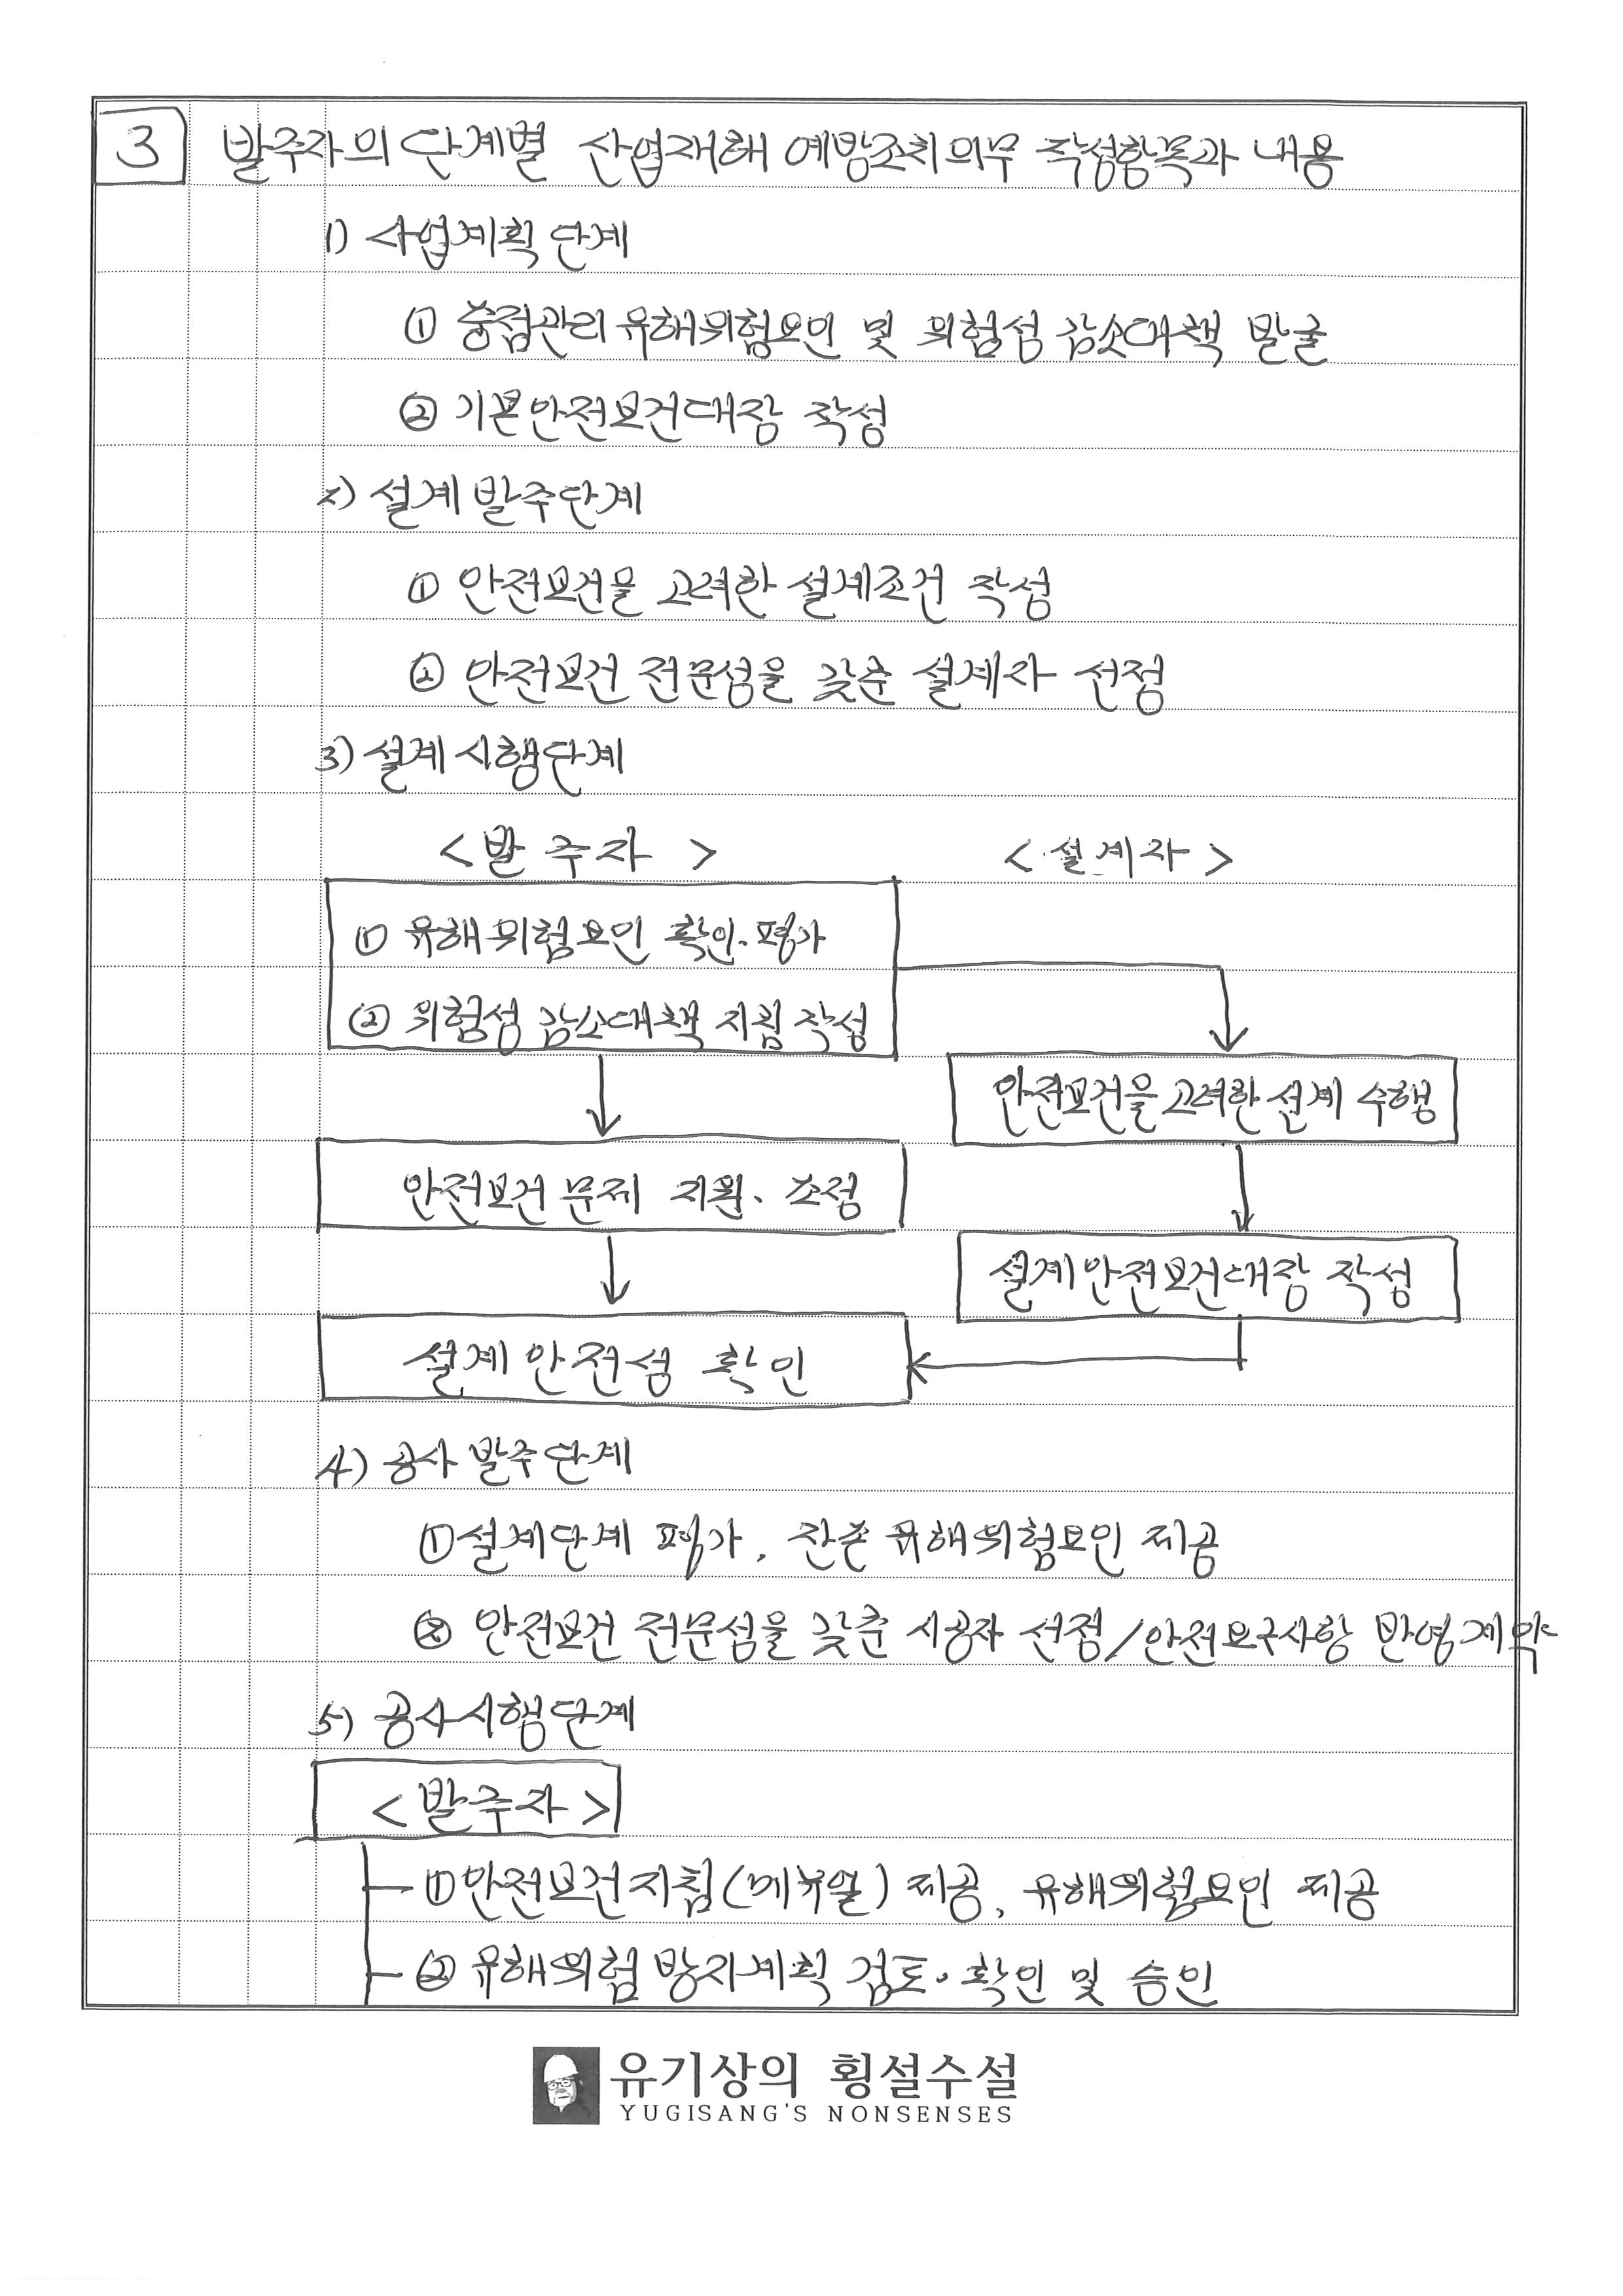 3 발주자의 단계별 산업재해 예방조치의무 작성항목과 내용
1) 사업계획 단계
① 중점관리 유해위험요인 및 위험성 감소대책 발굴
② 기본안전보건대장 작성
2) 설계 발주단계
① 안전보건을 고려한 설계조건 작성
② 안전보건 전문성을 갖춘 설계자 선정
3) 설계 시행단계
<발주자> <설계자>
① 유해위험요인 확인·평가
② 위험성 감소대책 지침 작성
안전보건을 고려한 설계 수행
안전보건 문제 지원·조정
설계안전보건대장 작성
설계 안전성 확인
4) 공사 발주단계
① 설계단계 평가, 잔존 유해위험요인 제공
② 안전보건 전문성을 갖춘 시공자 선정/안전요구사항 반영계약
5) 공사시행단계
<발주자>
① 안전보건지침(메뉴얼) 제공, 유해위험요인 제공
② 유해위험 방지계획 검토·확인 및 승인
유기상의 횡설수설
YUGISANG'S NONSENSES